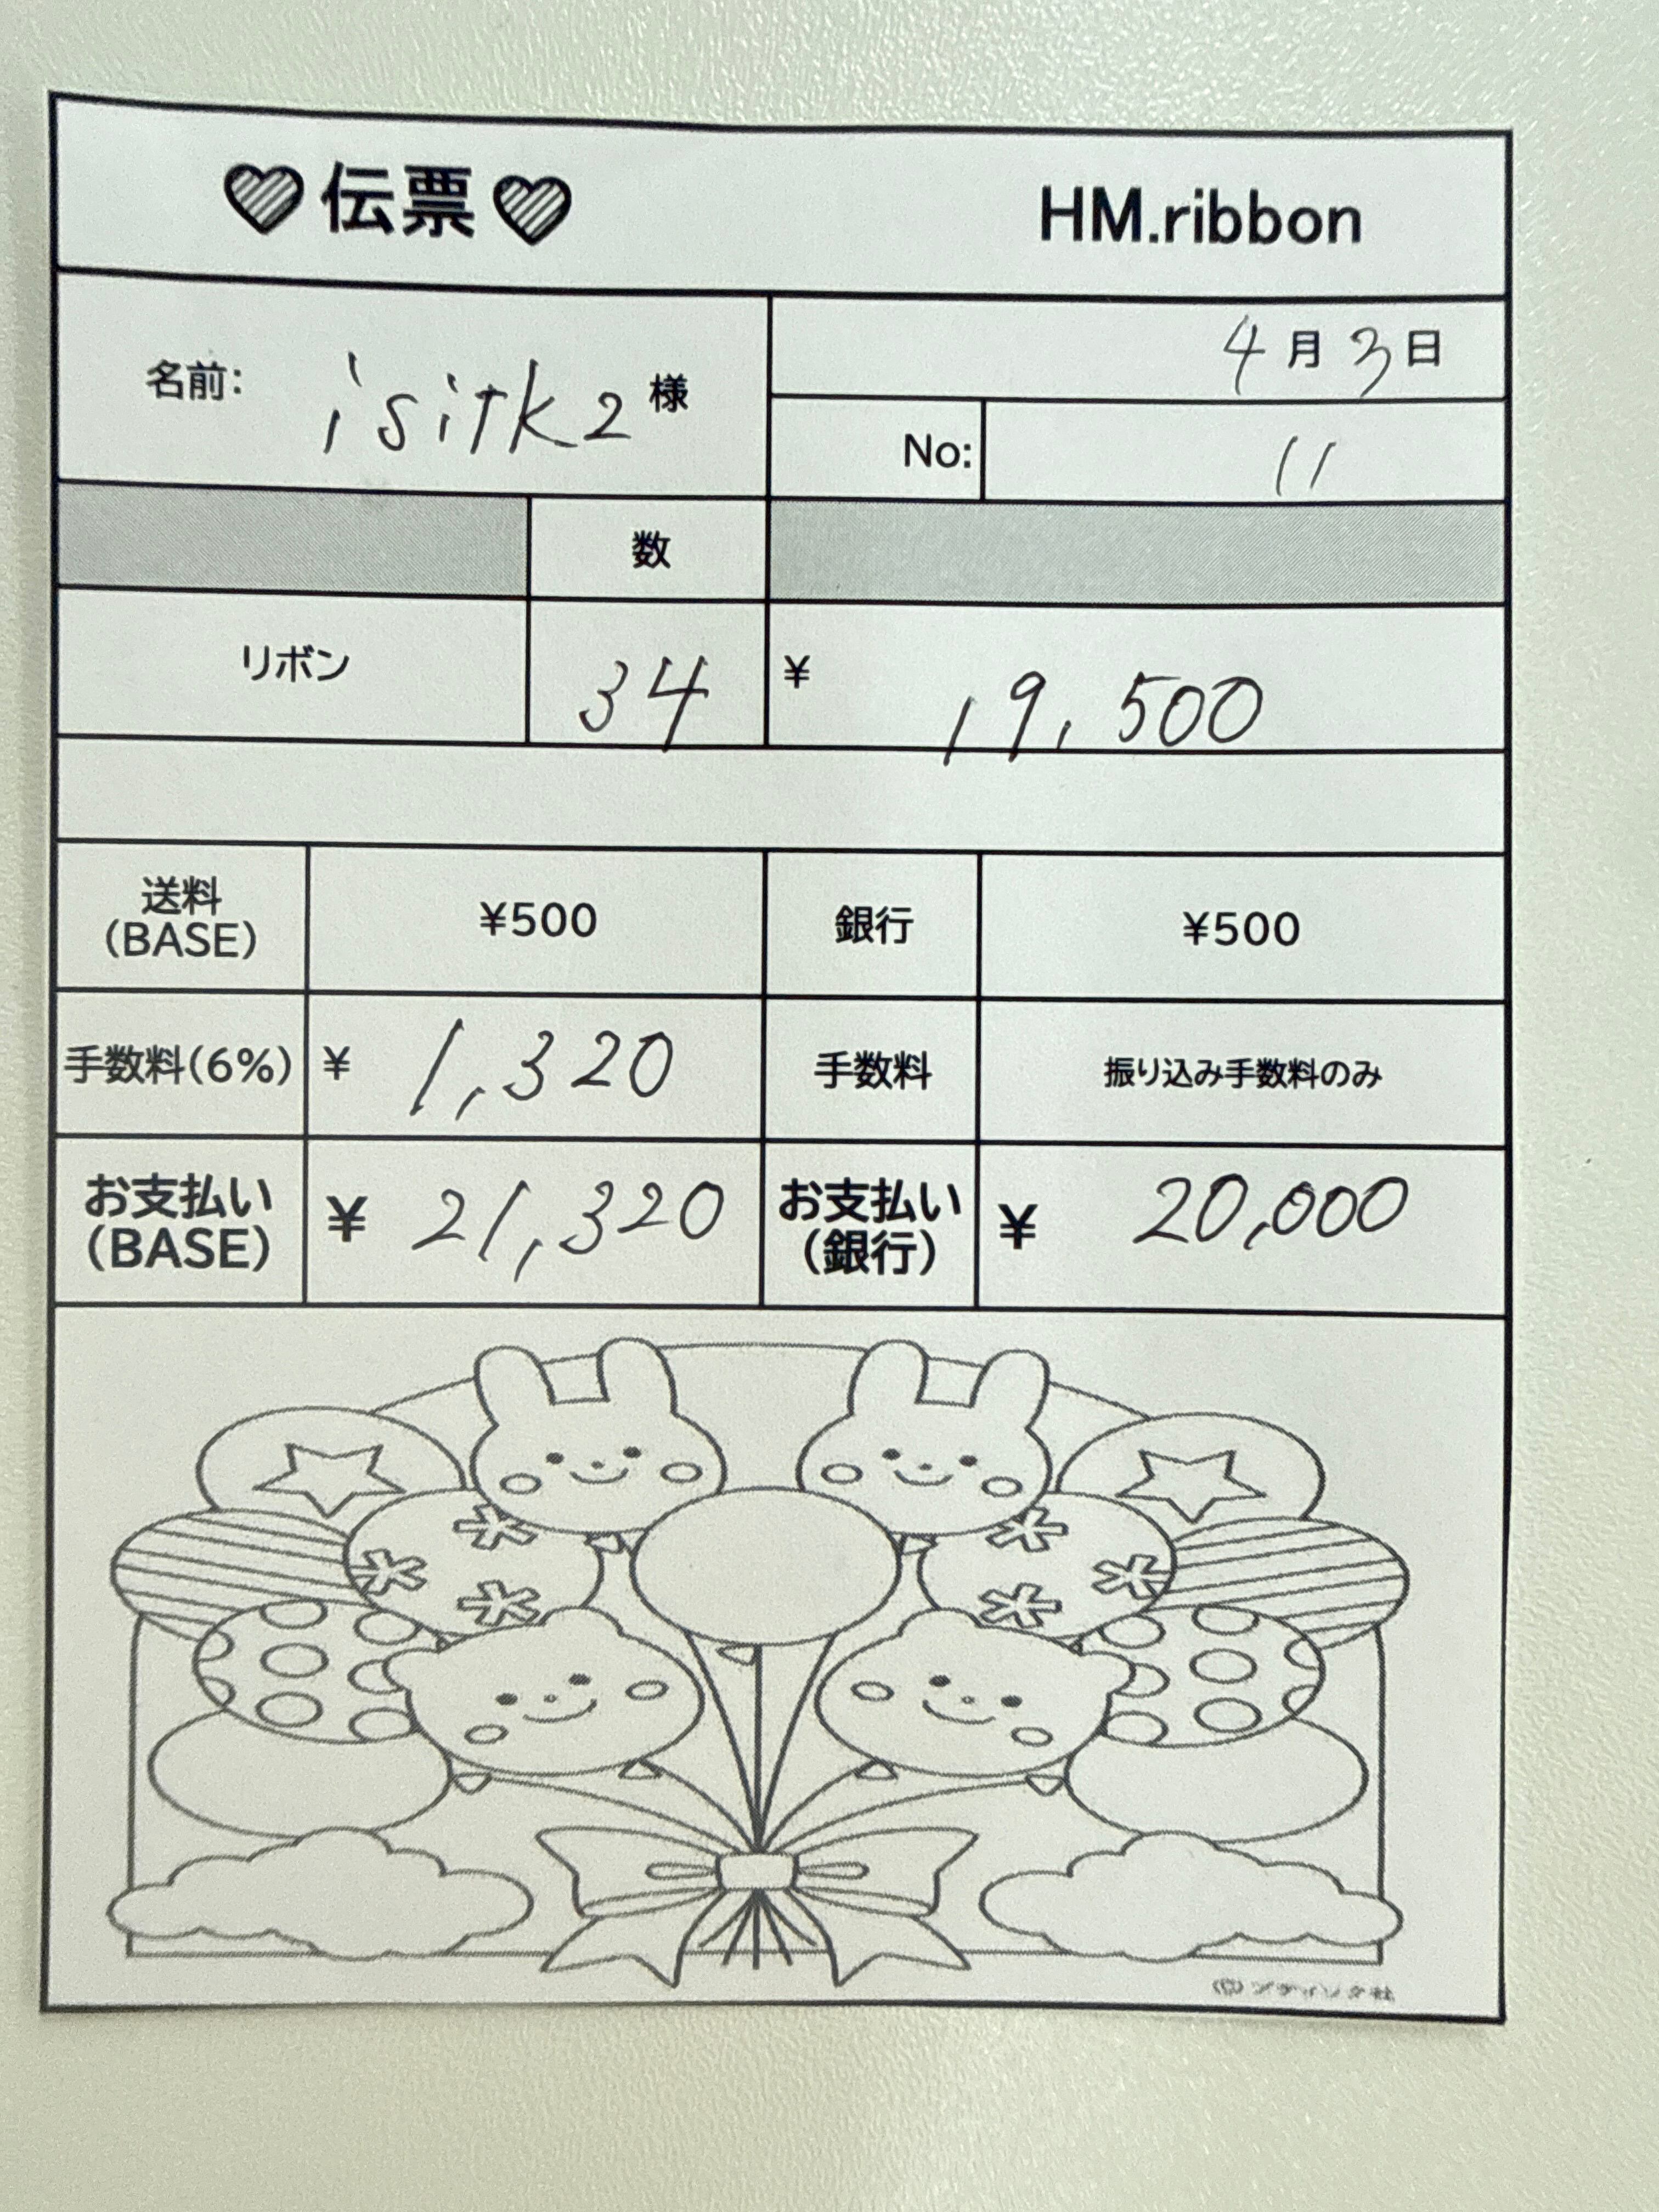 伝票 HM.ribbon
名前: isitk2 様
4月3日
No: 11
数
リボン 34 ¥ 19,500
送料(BASE) ¥500 銀行 ¥500
手数料(6%) ¥ 1,320 手数料 振り込み手数料のみ
お支払い(BASE) ¥ 21,320 お支払い(銀行) ¥ 20,000